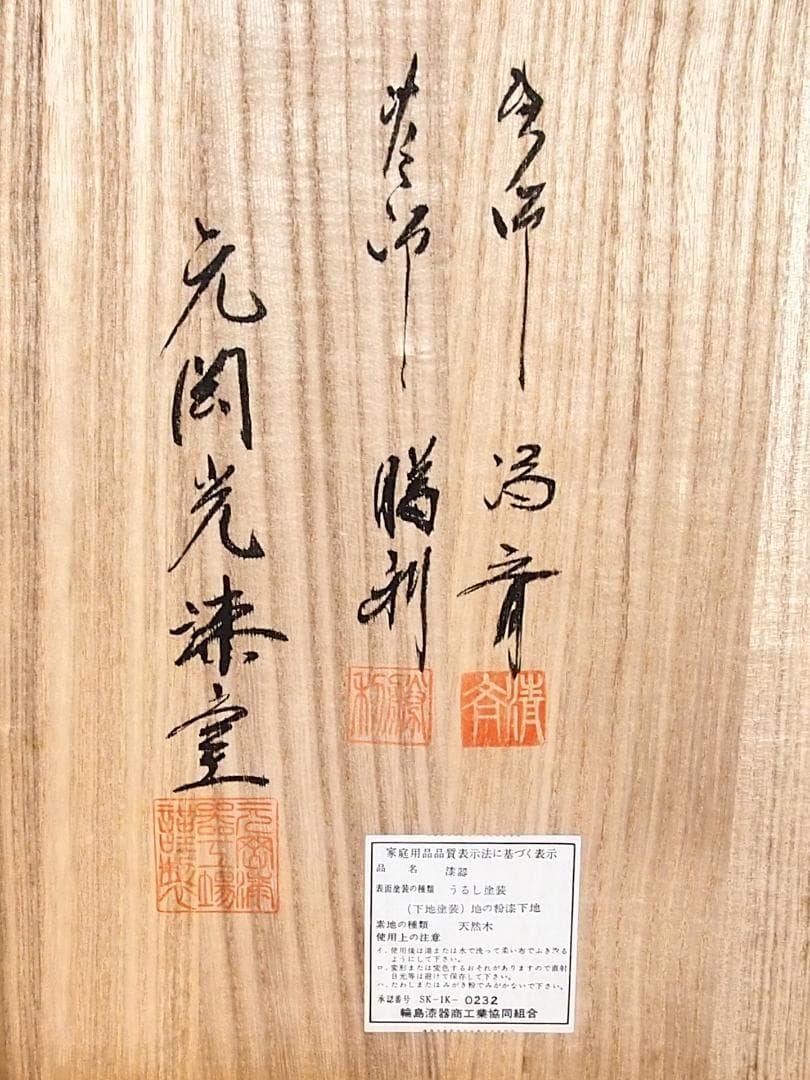 師 清斉
清斉
師 勝利
勝利
元岡光漆室
家庭用品品質表示法に基づく表示
品名 漆器
表面塗装の種類 うるし塗装
(下地塗装) 地の粉漆下地
素地の種類 天然木
使用上の注意
イ. 使用後は湯または水で洗って柔い布でふき取る
ようにして下さい。
ロ. 変形または変色するおそれがありますので直射
日光等は避けて保存して下さい。
ハ. たわしまたはみがき粉でみがかないで下さい。
承認番号 SK-IK- 0232
輪島漆器商工業協同組合